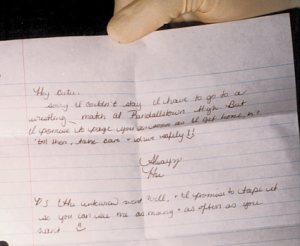 Hey cutie,
Sorry I couldn't stay. I have to go to a
wrestling match at Randallstown High. But
I promise to page you as soon as I get home,
'till then, take care + drive safely!
Always,
Hae
P.S. the interview went well, + I promise to tape it
so you can see me as many + as often as you
want